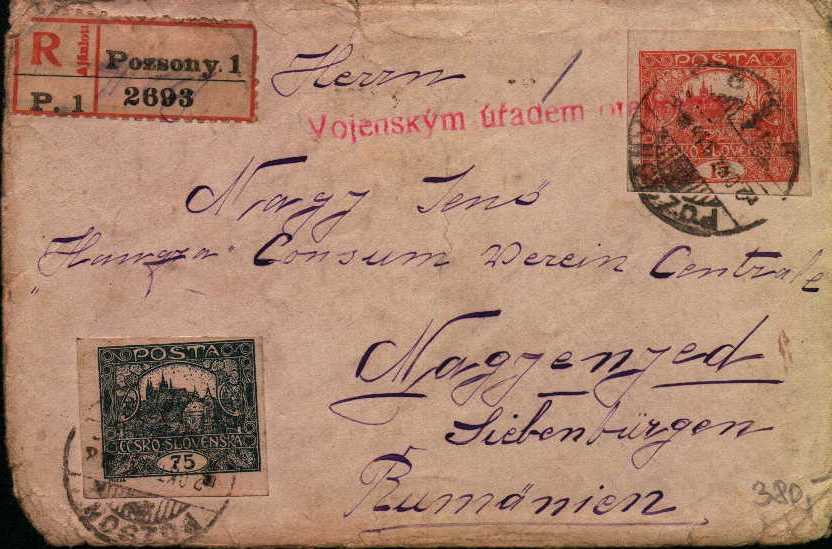 R Ajánlott Pozsony. 1
P. 1 2693
Herrn
Vojenským úřadem
Nagy Jenő
"Hangya" Consum Verein Centrale
Nagyenyed
Siebenbürgen
Rumänien
POSTA
ČESKO-SLOVENSKÁ
15
POSTA
ČESKO-SLOVENSKÁ
75
POZSONY
380,-